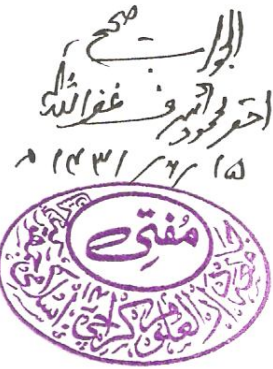 الجواب صحیح
احقر محمود اشرف غفر اللہ لہ
۱۵/۶/۱۴۳۱ھ
مفتی
دارالعلوم کراچی